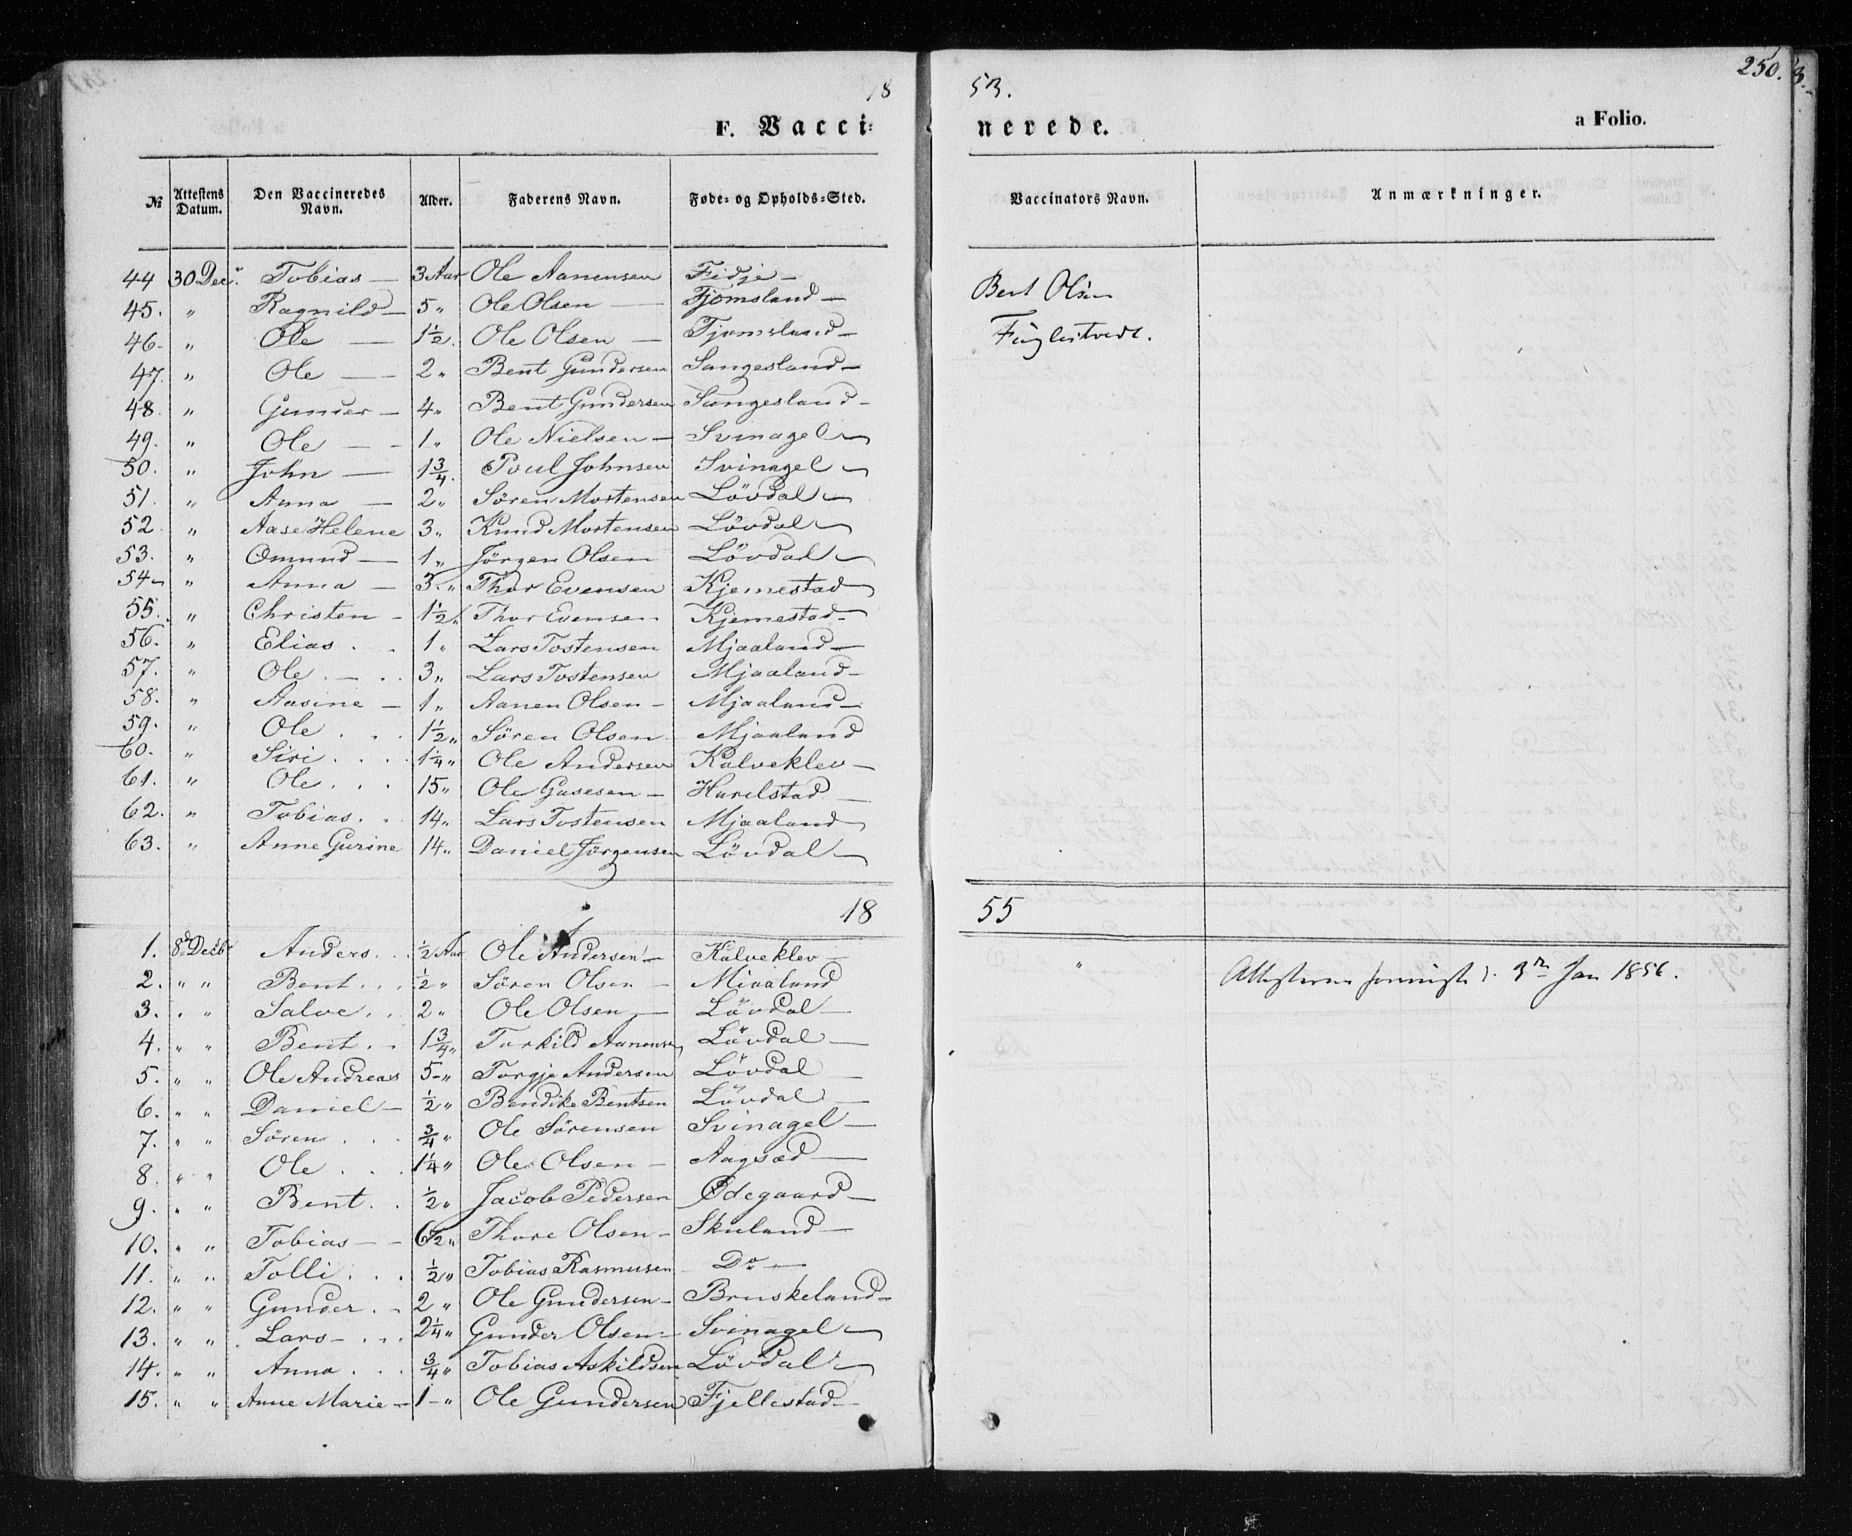 250.
18 53.
F. Vacci- nerede. a Folio.
№ Attestens Datum. Den Vaccineredes Navn. Alder. Faderens Navn. Føde- og Opholds-Sted. Vaccinators Navn. Anmærkninger.
44 30 Decr. Tobias — 3 Aar Ole Aanensen Fidje — Bent Olsen
45. " Ragnild — 5 " Ole Olsen — Fjomsland —
46. " Ole — 1½ . Ole Olsen — Fjomsland — Fuglestvedt.
47. " Ole — 2 " Bent Gundersen Sangesland —
48. " Gunder — 4 " Bent Gundersen Sangesland —
49. " Ole — 1 " Ole Nielsen — Svinagel —
50. " John — 1¾ . Poul Johnsen Svinagel —
51. " Anna — 2 " Søren Mortensen Lövdal —
52 " Aase Helene 3 " Knud Mortensen Lövdal —
53. " Omund — 1 " Jørgen Olsen Lövdal —
54 " Anna — 3 " Thor Evensen Kjemestad
55. " Christen - 1½ " Thor Evensen Kjemestad —
56. " Elias . . 1 " Lars Tostensen Mjaaland —
57. " Ole . — . 3 " Lars Tostensen Mjaaland —
58. " Aasine — 1 " Aanen Olsen — Mjaaland —
59. " Ole . . . 1½ " Søren Olsen Mjaaland
60. " Siri . . . . 1¼ " Ole Andersen Kalveklev —
61. " Ole . . . 15 " Ole Gasesen — Harelstad —
62. " Tobias . . 14 " Lars Tostensen Mjaaland
63. " Anne Gurine 14 " Daniel Jørgensen Lövdal —
18 55
1. 8de Decbr Anders . . . ½ Aar Ole Andersen — Kalveklev —
2. " " Bent . . . ½ " Søren Olsen — Miaaland " 3die Jan 1856.
3. " " Salve . . 2 " Ole Olsen — Lövdal —
4. " " Bent . . 1¾ " Torkild Aanensen Lövdal —
5. " " Ole Andreas 5 — " Torgje Andersen Lövdal —
6. " " Daniel — ½ " Bendike Bentsen Lövdal —
7. " " Søren . . . ¾ " Ole Sørensen Svinagel —
8. " " Ole . . . 1¼ " Ole Olsen — Aagsæd —
9. " " Bent . . ½ " Jacob Pedersen Ødegaard —
10. " " Tobias — - 6½ " Thore Olsen — Skuland —
11. " " Tolli . . . ½ " Tobias Rasmusen Do —
12. " " Gunder . - 2 " Ole Gundersen — Bruskeland —
13. " " Lars — . . . 2¼ " Gunder Olsen — Svinagel —
14. " " Anna . . . ¾ " Tobias Askildsen Lövdal —
15. " " Anne Marie — 1 — " Ole Gundersen Fjellestad —